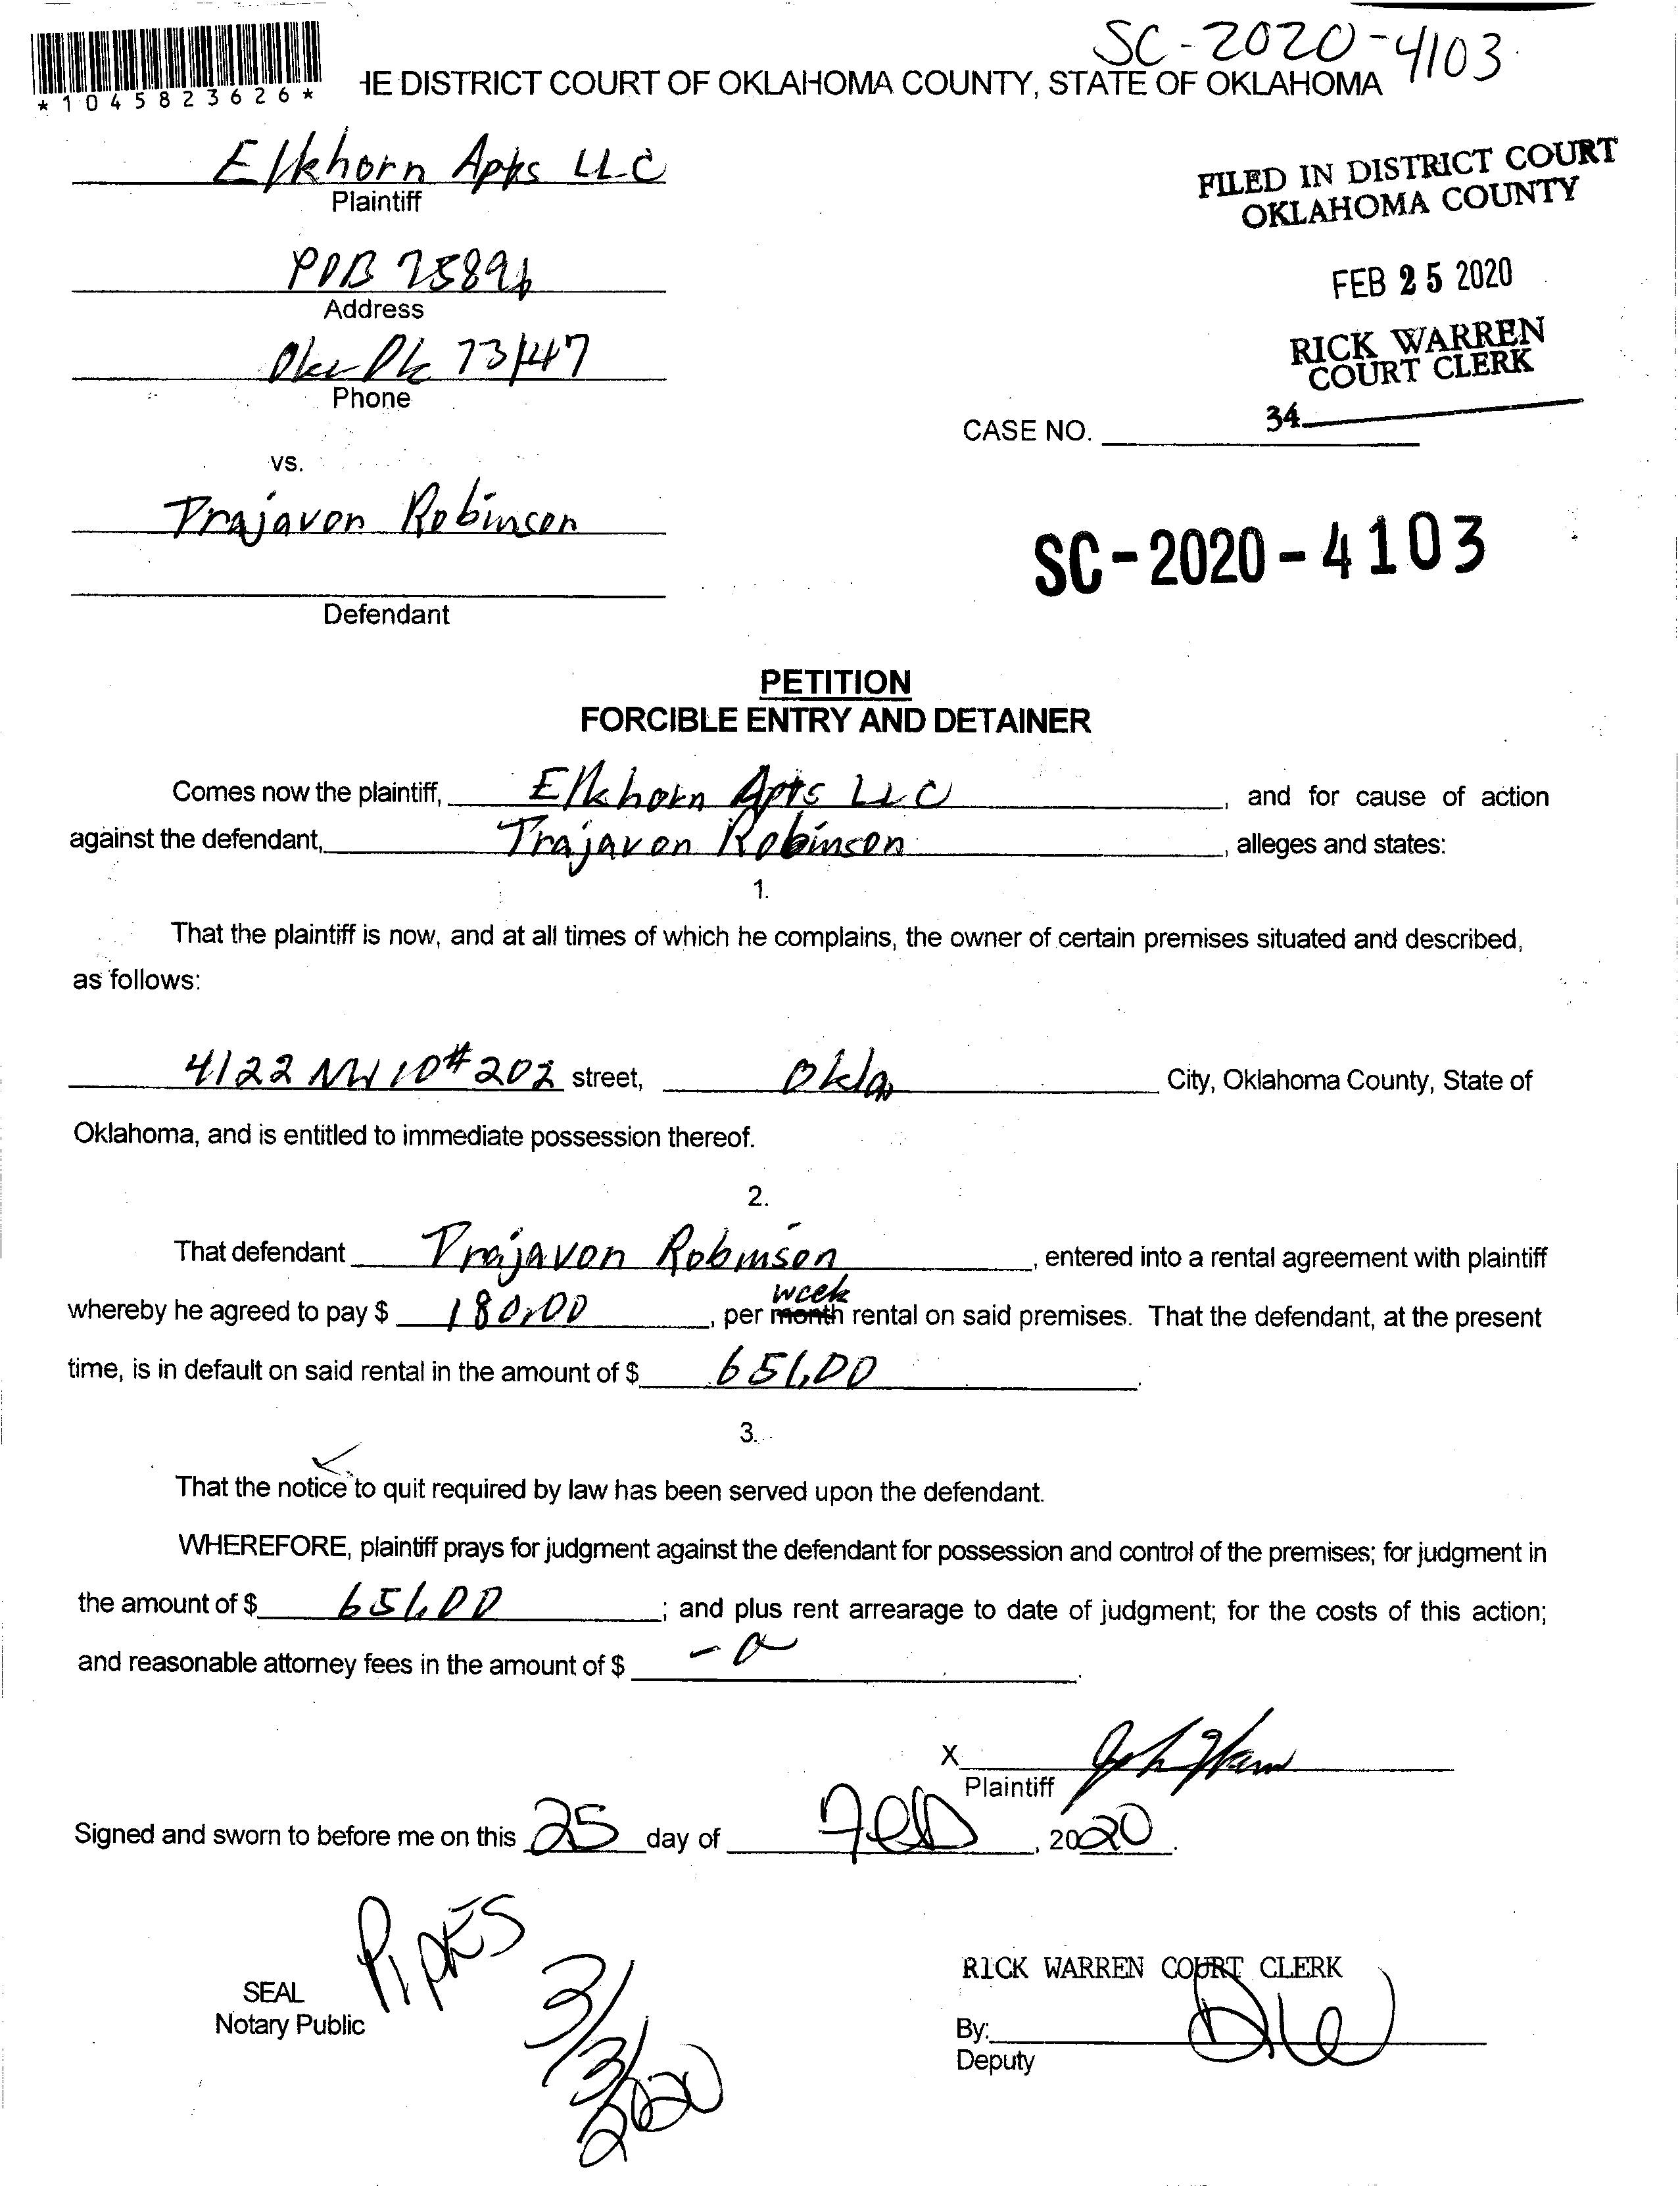 SC-2020-4103
*1045823626*
HE DISTRICT COURT OF OKLAHOMA COUNTY, STATE OF OKLAHOMA
Elkhorn Apts LLC
Plaintiff
FILED IN DISTRICT COURT
OKLAHOMA COUNTY
POB
Address
FEB 25 2020
Okc Ok 73147
Phone
RICK WARREN
COURT CLERK
34
CASE NO.
vs.
Trajavon Robinson
SC-2020-4103
Defendant
PETITION
FORCIBLE ENTRY AND DETAINER
Comes now the plaintiff, Elkhorn Apts LLC, and for cause of action
against the defendant, Trajavon Robinson, alleges and states:
1.
That the plaintiff is now, and at all times of which he complains, the owner of certain premises situated and described,
as follows:
4122 NW 10 # 202 street, Okla City, Oklahoma County, State of
Oklahoma, and is entitled to immediate possession thereof.
2.
That defendant Trajavon Robinson, entered into a rental agreement with plaintiff
week
whereby he agreed to pay $ 180.00, per month rental on said premises. That the defendant, at the present
time, is in default on said rental in the amount of $ 651.00.
3.
That the notice to quit required by law has been served upon the defendant.
WHEREFORE, plaintiff prays for judgment against the defendant for possession and control of the premises; for judgment in
the amount of $ 651.00; and plus rent arrearage to date of judgment; for the costs of this action;
and reasonable attorney fees in the amount of $ -0-.
X
Plaintiff
Signed and sworn to before me on this 25 day of Feb, 2020.
Pipes
3/3/2020
RICK WARREN COURT CLERK
SEAL
Notary Public
By:
Deputy